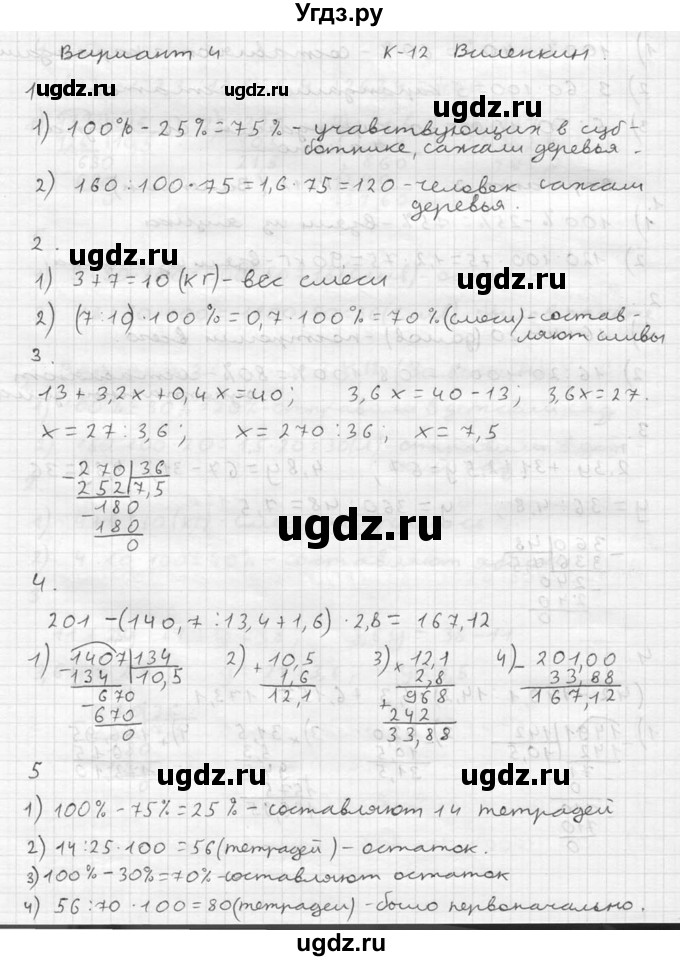 Угдз.ру
Вариант 4 К-12 Виленкин.
ugdz.ru ugdz.ru
1
1) 100% - 25% = 75% - учавствующих в суб-
ботнике, сажали деревья.
2) 160 : 100 · 75 = 1,6 · 75 = 120 - человек сажали
деревья.
ugdz.ru
2.
1) 3 + 7 = 10 (кг) - вес смеси
ugdz.ru
2) (7 : 10) · 100% = 0,7 · 100% = 70% (смеси) - состав-
ляют сливы
3.
13 + 3,2x + 0,4x = 40; 3,6x = 40 - 13; 3,6x = 27.
x = 27 : 3,6; x = 270 : 36; x = 7,5
- 270 | 36
252 7,5
- 180
180
0
ugdz.ru
4.
201 - (140,7 : 13,4 + 1,6) · 2,8 = 167,12
1) 1407 | 134
- 134 10,5
- 670
670
0
2) + 10,5
1,6
12,1
3) × 12,1
2,8
+ 968
242
33,88
4) - 201,00
33,88
167,12
5
ugdz.ru ugdz.ru
1) 100% - 75% = 25% - составляют 14 тетрадей
2) 14 : 25 · 100 = 56 (тетрадей) - остаток.
3) 100% - 30% = 70% - составляют остаток
4) 56 : 70 · 100 = 80 (тетрадей) - было первоначально.
ugdz.ru